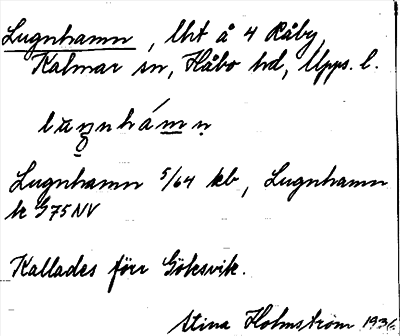 Lugnhamn, lht å 4 Råby,
Kalmar sn, Håbo hd, Upps. l.
Lugnhamn 5/64 kb, Lugnhamn
k G75NV
Kallades förr Göksvik.
Stina Holmström 1936